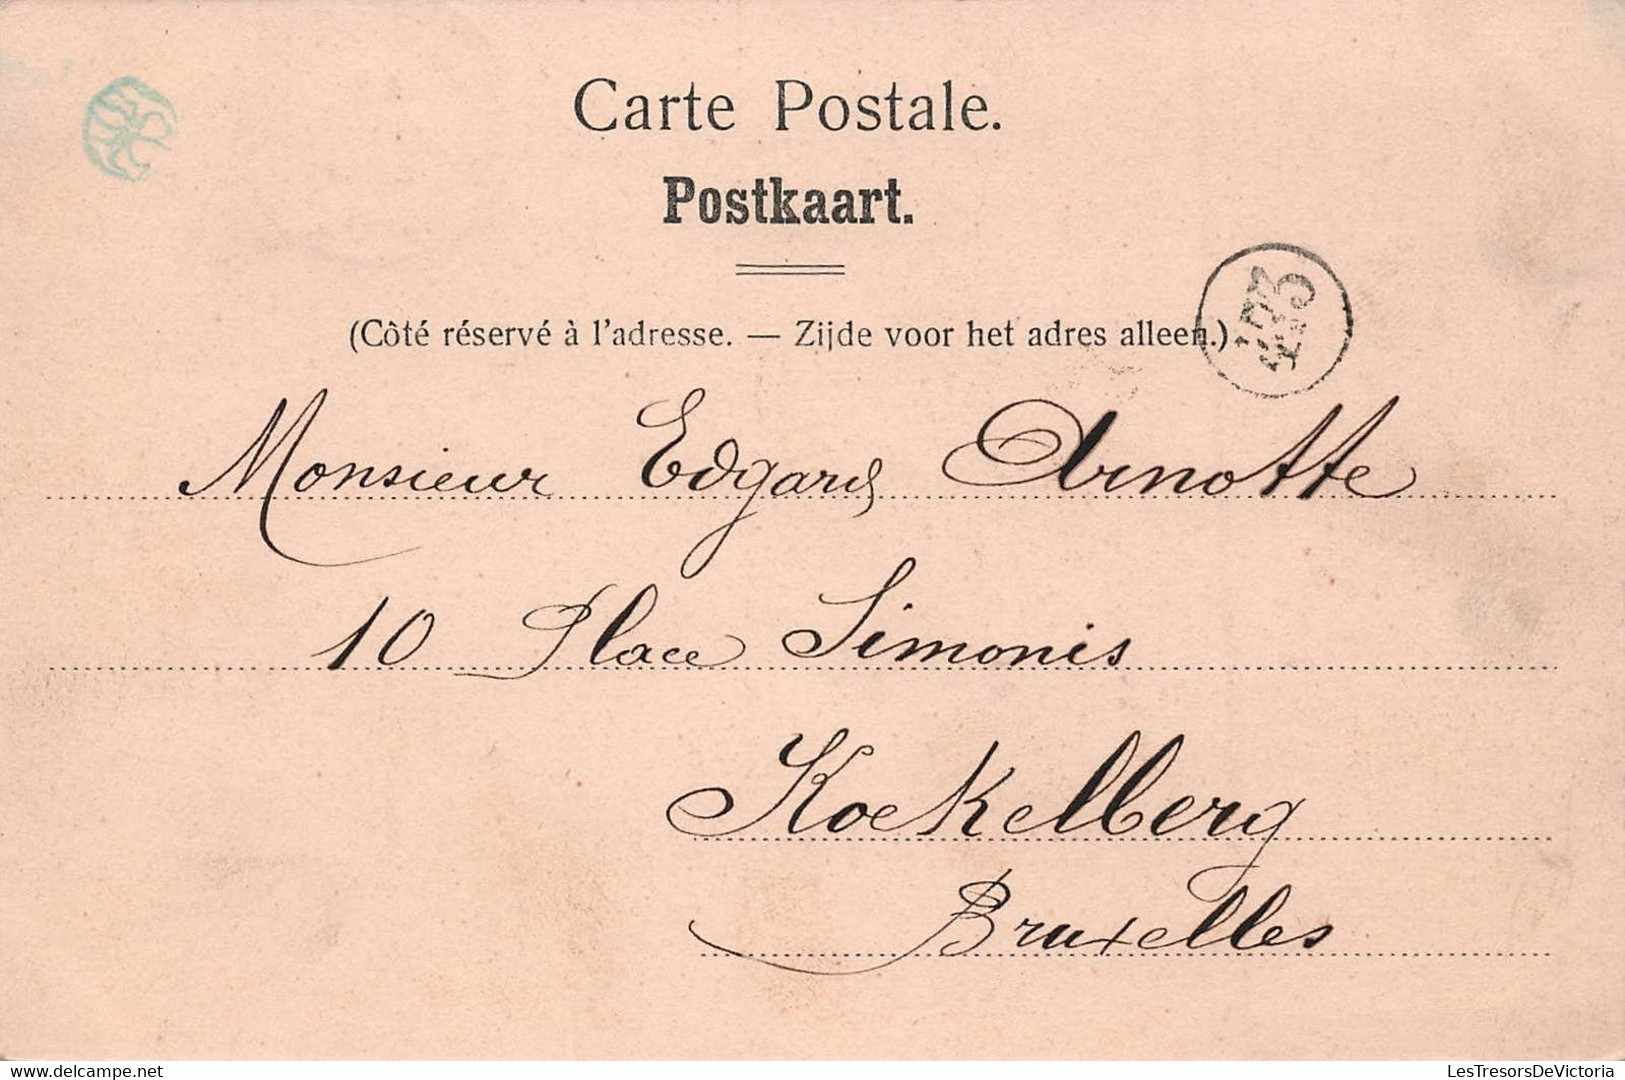 Carte Postale.
Postkaart.
(Côté réservé à l'adresse. — Zijde voor het adres alleen.)
Monsieur Edgard Arnotte
10 Place Simonis
Koekelberg
Bruxelles
www.delcampe.net
LesTresorsDeVictoria